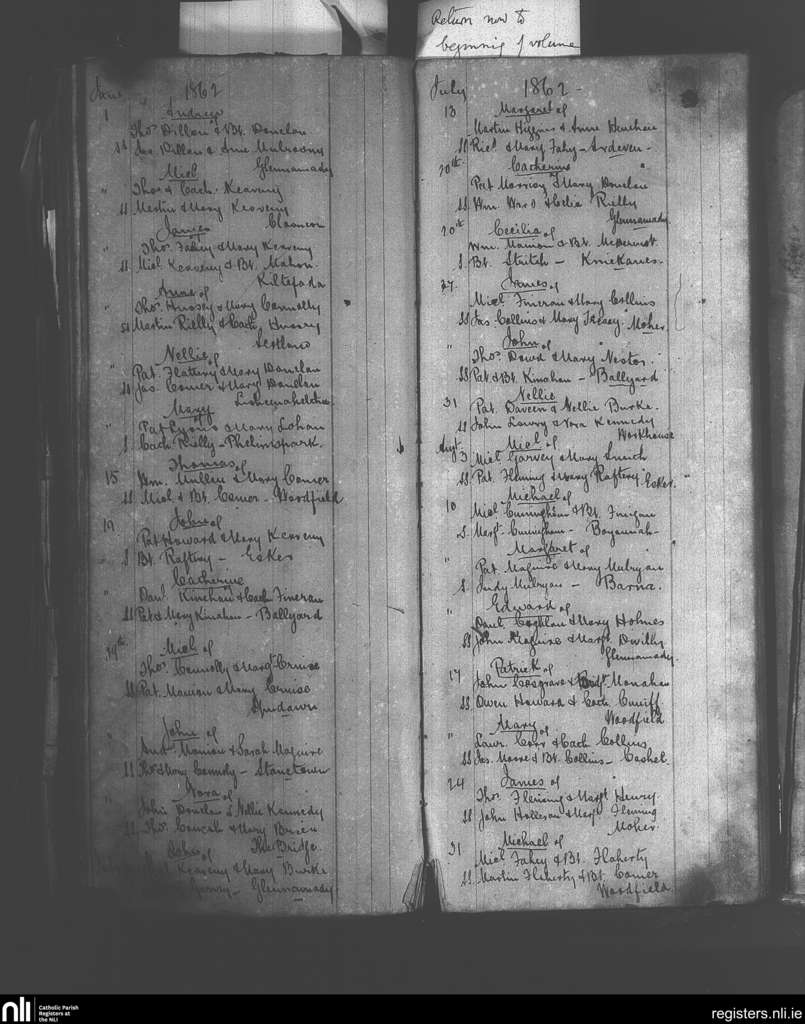 Return now to
beginning of volume
June 1862
1 Andrew
Thos Dillon & Bt. Donelan
SS Jas Dillon & Anne Mulroony
Glennamady
" Miel
Thos & Cath. Keaveny
SS Martin & Mary Keaveny
Clooncon
" James
Thos Fahey & Mary Keaveny
SS Miel Keaveny & Bt. Mahon
" Anne of
Thos Hussey & Mary Connolly
SS Martin Rielly & Cath Hussey
Scotland
" Nellie of
Pat Flattery & Mary Donelan
SS Jas. Comer & Mary Donelan
" Mary of
Pat Lyons & Mary Lohan
S Cath Rielly - Phelimspark.
15 Thomas of
Wm. Mullen & Mary Comer
SS Miel & Bt. Comer - Woodfield
19 John of
Pat Howard & Mary Keaveny
S Bt. Raftery - Esker
" Catherine
Danl Kinehan & Cath Fineran
SS Pat & Mary Kinahan - Ballyard
19th Miel of
Thos Connolly & Margt Cruise
SS Pat. Manion & Mary Cruise
" John of
Andw Manion & Sarah Maguire
SS Thos & Mary Connely - Stonetown
" Nora of
John Donelan & Nellie Kennedy
SS Thos & Mary
The Bridge.
John of
Keaveny & Mary Burke
- Glennamady
July 1862
13 Margaret of
Martin Higgins & Anne Henehan
SS Ricd & Mary Fahy - Ardeven -
20th Catherine "
Pat Morris & Mary Donelan
SS Wm. Ward & Celia Rielly
Glennamady.
20th Cecilia of
Wm. Manion & Bt. McDermot
S Bt. Stritch - Knickanes.
27 James of
Miel Fineran & Mary Collins
SS Jas. Collins & Mary Treasy Moher
" John of
Thos Dowd & Mary Nestor.
SS Pat & Bt. Kinahan - Ballyard
31 Nellie
Pat. Daveen & Nellie Burke.
SS John Lowry & Nora Kennedy
Workhouse
Augt Miel of
3 Miel Garvey & Mary
SS Pat Fleming & Mary Raftery Esker.
10 Michael of
Miel Cuningham & Bt. Finegan
S. Margt Cuningham - Boyannah-
" Margaret of
Pat Maguire & Mary Mulryan
S Judy Mulryan - Barna.
" Edward of
Danl Coghlan & Mary Holmes
SS John Maguire & Margt Devilly
Glennamady.
17 Patrick of
John Cosgrave & Bidt Monahan
SS. Owen Howard & Cath Cuniff
Woodfield
" Mary of
Lawr Corr & Cath Collins
SS Jas. Moore & Bt. Collins - Cashel.
24 James of
Thos Fleming & Margt Henry
SS John Halloran & Margt Fleming
Moher.
31 Michael of
Miel Fahey & Bt. Flaherty
SS Martin Flaherty & Bt Comer
Woodfield
nli
Catholic Parish
Registers at
the NLI
registers.nli.ie